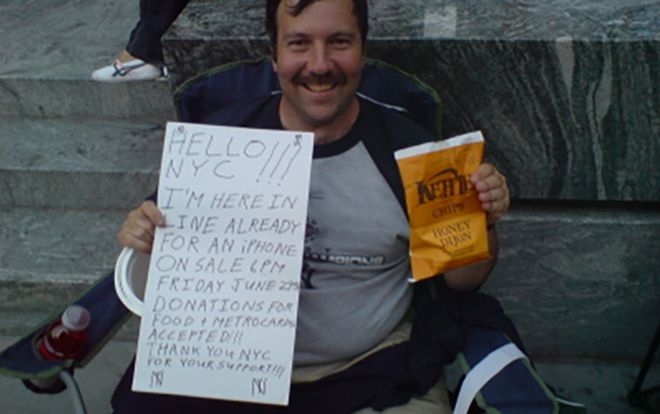 HELLO!!!
NYC !!!
I'M HERE IN
LINE ALREADY
FOR AN iPHONE
ON SALE 6PM
FRIDAY JUNE 29th
DONATIONS FOR
FOOD + METROCARDS
ACCEPTED!!!
THANK YOU NYC
FOR YOUR SUPPORT!!!
KETTLE
CHIPS
HONEY
DIJON